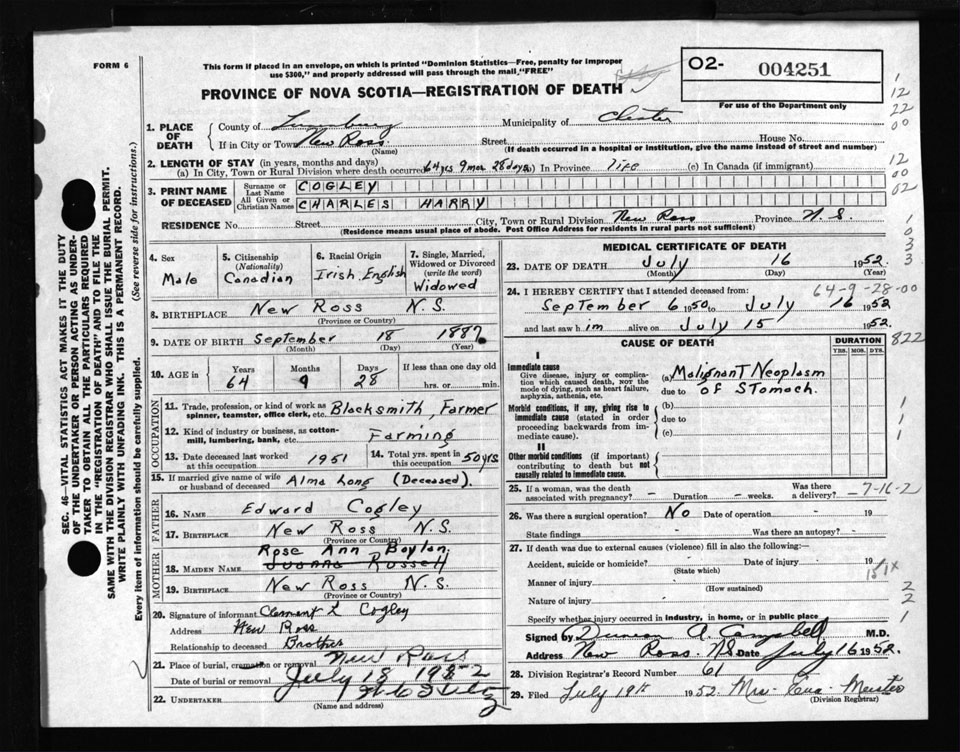 FORM 6
This form if placed in an envelope, on which is printed "Dominion Statistics—Free, penalty for improper
use $300," and properly addressed will pass through the mail, "FREE"
O2- 004251
For use of the Department only
PROVINCE OF NOVA SCOTIA—REGISTRATION OF DEATH
1. PLACE OF DEATH { County of Lunenburg Municipality of Chester
If in City or Town New Ross Street House No.
(Name) (If death occurred in a hospital or institution, give the name instead of street and number)
2. LENGTH OF STAY (in years, months and days)
(a) In City, Town or Rural Division where death occurred 64 yrs 9 mos 28 days (b) In Province life (c) In Canada (if immigrant)
3. PRINT NAME OF DECEASED { Surname or Last Name COGLEY
All Given or Christian Names CHARLES HARRY
RESIDENCE No. Street City, Town or Rural Division New Ross Province N.S.
(Residence means usual place of abode. Post Office Address for residents in rural parts not sufficient)
4. Sex Male
5. Citizenship (Nationality) Canadian
6. Racial Origin Irish English
7. Single, Married, Widowed or Divorced (write the word) Widowed
8. BIRTHPLACE New Ross N.S.
(Province or Country)
9. DATE OF BIRTH September 18 1887
(Month) (Day) (Year)
10. AGE in { Years 64 Months 9 Days 28 If less than one day old
hrs. or min.
OCCUPATION
11. Trade, profession, or kind of work as spinner, teamster, office clerk, etc. Blacksmith, Farmer
12. Kind of industry or business, as cotton-mill, lumbering, bank, etc. Farming
13. Date deceased last worked at this occupation 1951
14. Total yrs. spent in this occupation 50 yrs.
15. If married give name of wife or husband of deceased Alma Long (Deceased).
FATHER
16. NAME Edward Cogley
17. BIRTHPLACE New Ross N.S.
(Province or Country)
MOTHER
Rose Ann Boylan
18. MAIDEN NAME Russell
19. BIRTHPLACE New Ross N.S.
(Province or Country)
20. Signature of informant Clement L Cogley
Address New Ross
Relationship to deceased Brother
21. Place of burial, cremation or removal New Ross
Date of burial or removal July 18 1952
22. UNDERTAKER
(Name and address)
MEDICAL CERTIFICATE OF DEATH
23. DATE OF DEATH July 16 1952
(Month) (Day) (Year)
64-9-28-00
24. I HEREBY CERTIFY that I attended deceased from:
September 6 1950, to July 16 1952
and last saw h im alive on July 15 1952.
CAUSE OF DEATH DURATION
YRS. MOS. DYS.
822
I
Immediate cause
Give disease, injury or complication which caused death, not the mode of dying, such as heart failure, asphyxia, asthenia, etc.
(a) Malignant Neoplasm
due to of Stomach.
Morbid conditions, if any, giving rise to immediate cause (stated in order proceeding backwards from immediate cause).
(b)
due to
(c)
II
Other morbid conditions (if important) contributing to death but not causally related to immediate cause.
25. If a woman, was the death associated with pregnancy? - Duration - weeks. Was there a delivery? -
7-16-2
26. Was there a surgical operation? No Date of operation - 19
State findings Was there an autopsy? -
27. If death was due to external causes (violence) fill in also the following:—
Accident, suicide or homicide? Date of injury 19
(State which)
Manner of injury
(How sustained)
Nature of injury
Specify whether injury occurred in industry, in home, or in public place
Signed by Duncan A. Campbell M.D.
Address New Ross NS Date July 16 1952.
28. Division Registrar's Record Number 61
29. Filed July 19th 1952 Mrs. Eva Meister
(Division Registrar)
SEC. 46—VITAL STATISTICS ACT MAKES IT THE DUTY
OF THE UNDERTAKER OR PERSON ACTING AS UNDER-
TAKER TO OBTAIN ALL THE PARTICULARS REQUIRED
IN THE "REGISTRATION OF DEATH" AND TO FILE THE
SAME WITH THE DIVISION REGISTRAR WHO SHALL ISSUE THE BURIAL PERMIT.
WRITE PLAINLY WITH UNFADING INK. THIS IS A PERMANENT RECORD.
Every item of information should be carefully supplied. (See reverse side for instructions.)